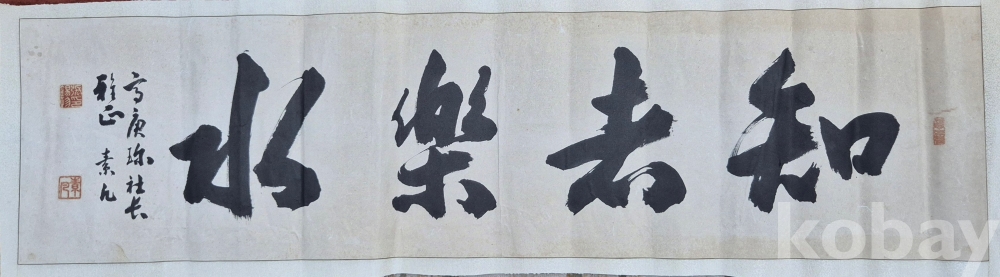 知者樂水
高庚琢社長
雅正 素凡
kobay